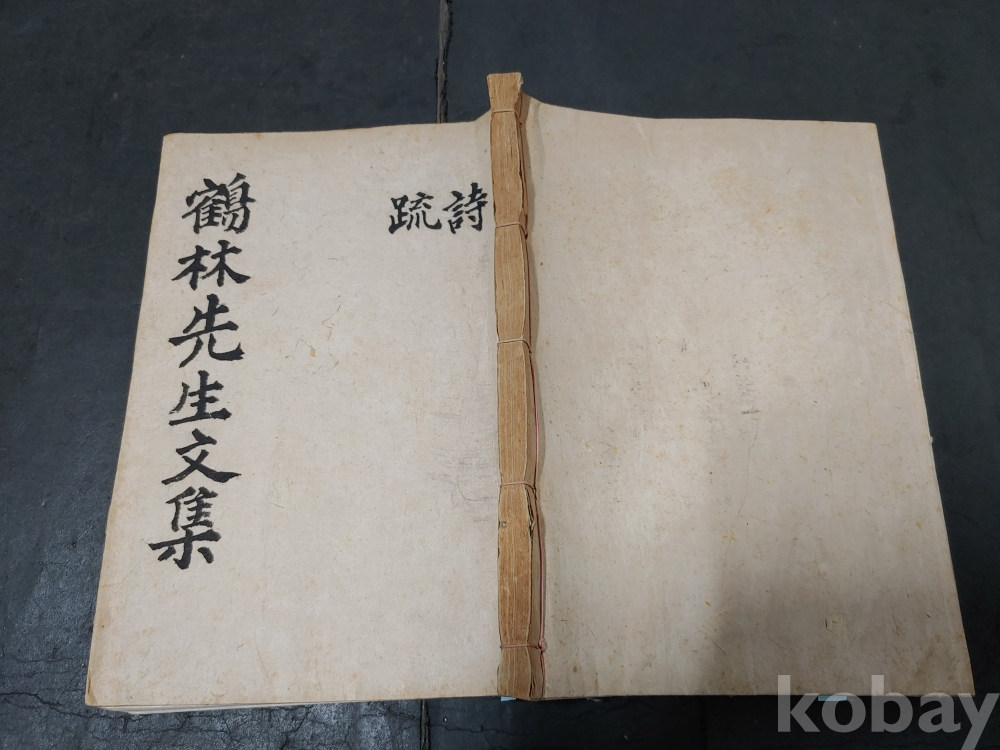 鶴林先生文集
詩
疏
kobay